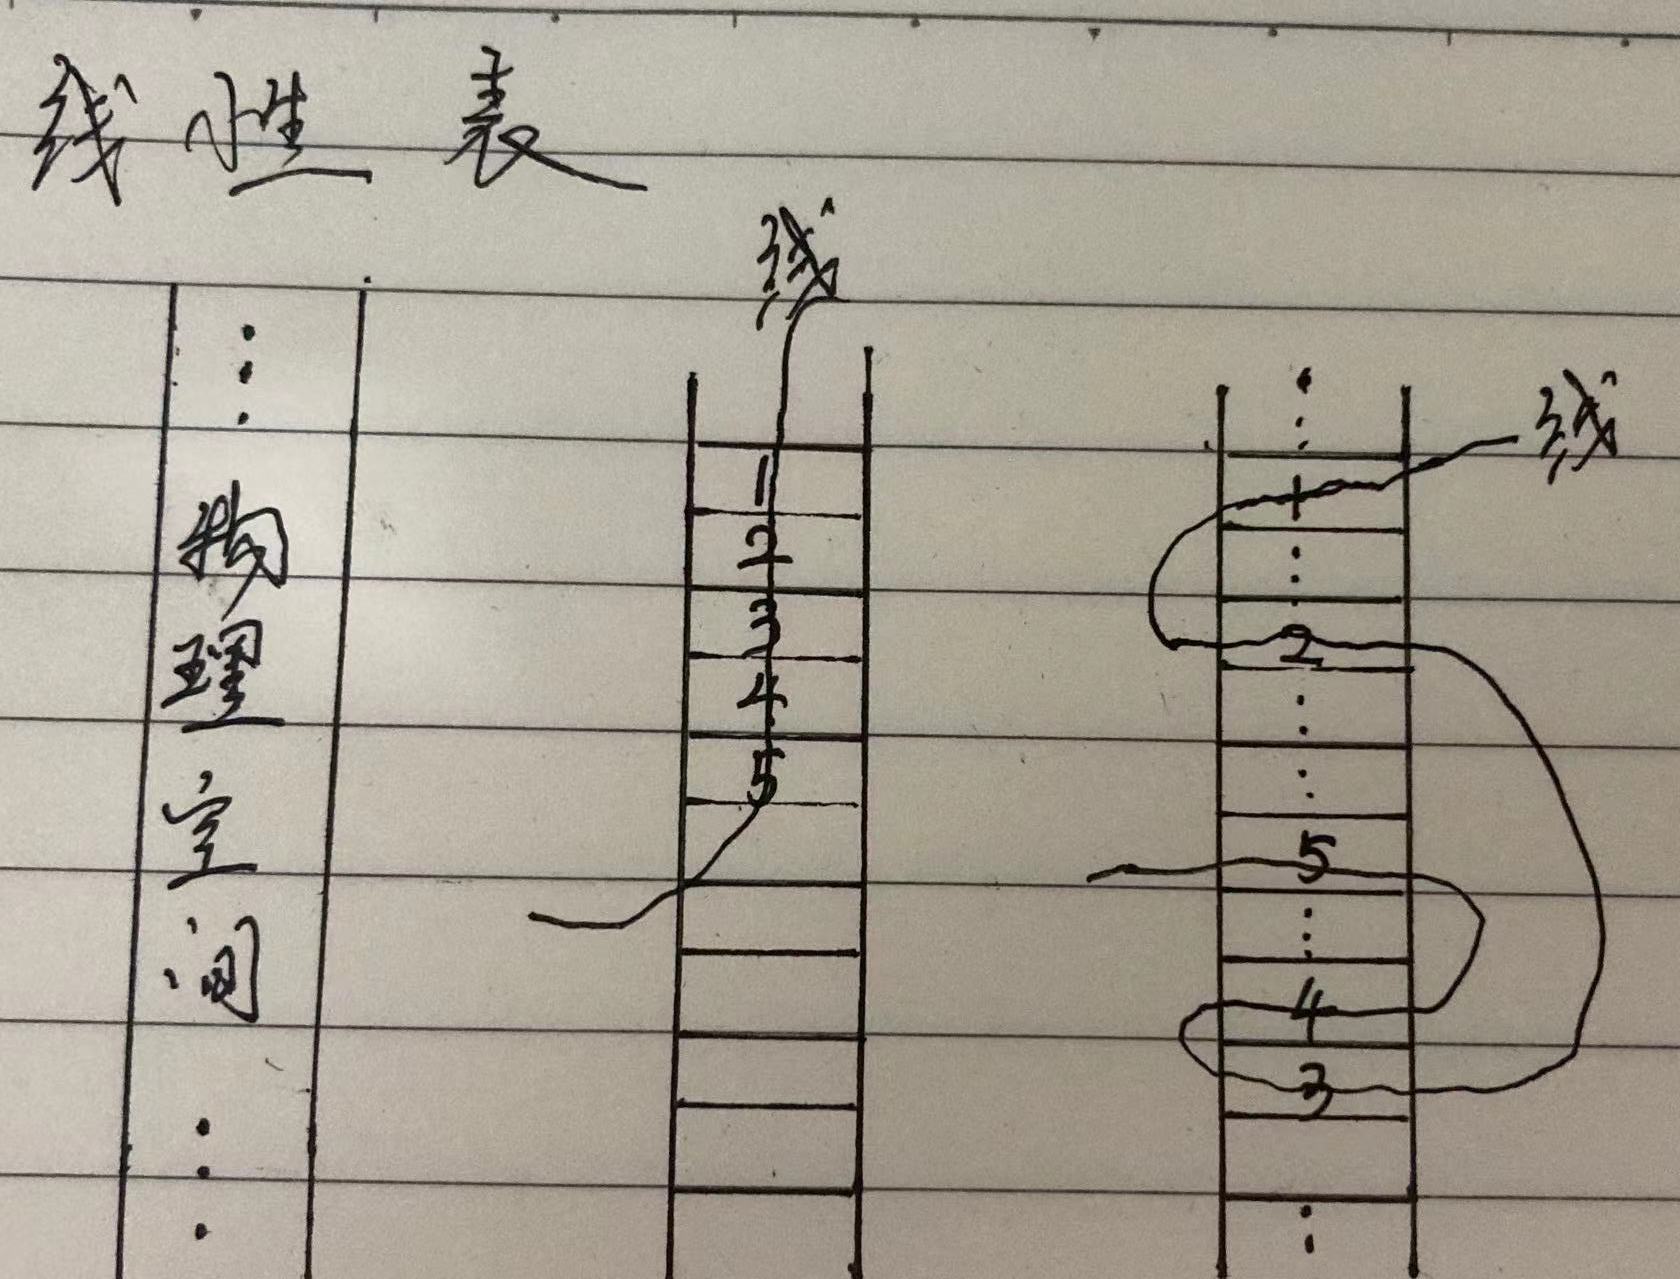 线性表
物理空间
线
1
2
3
4
5
线
1
2
5
4
3